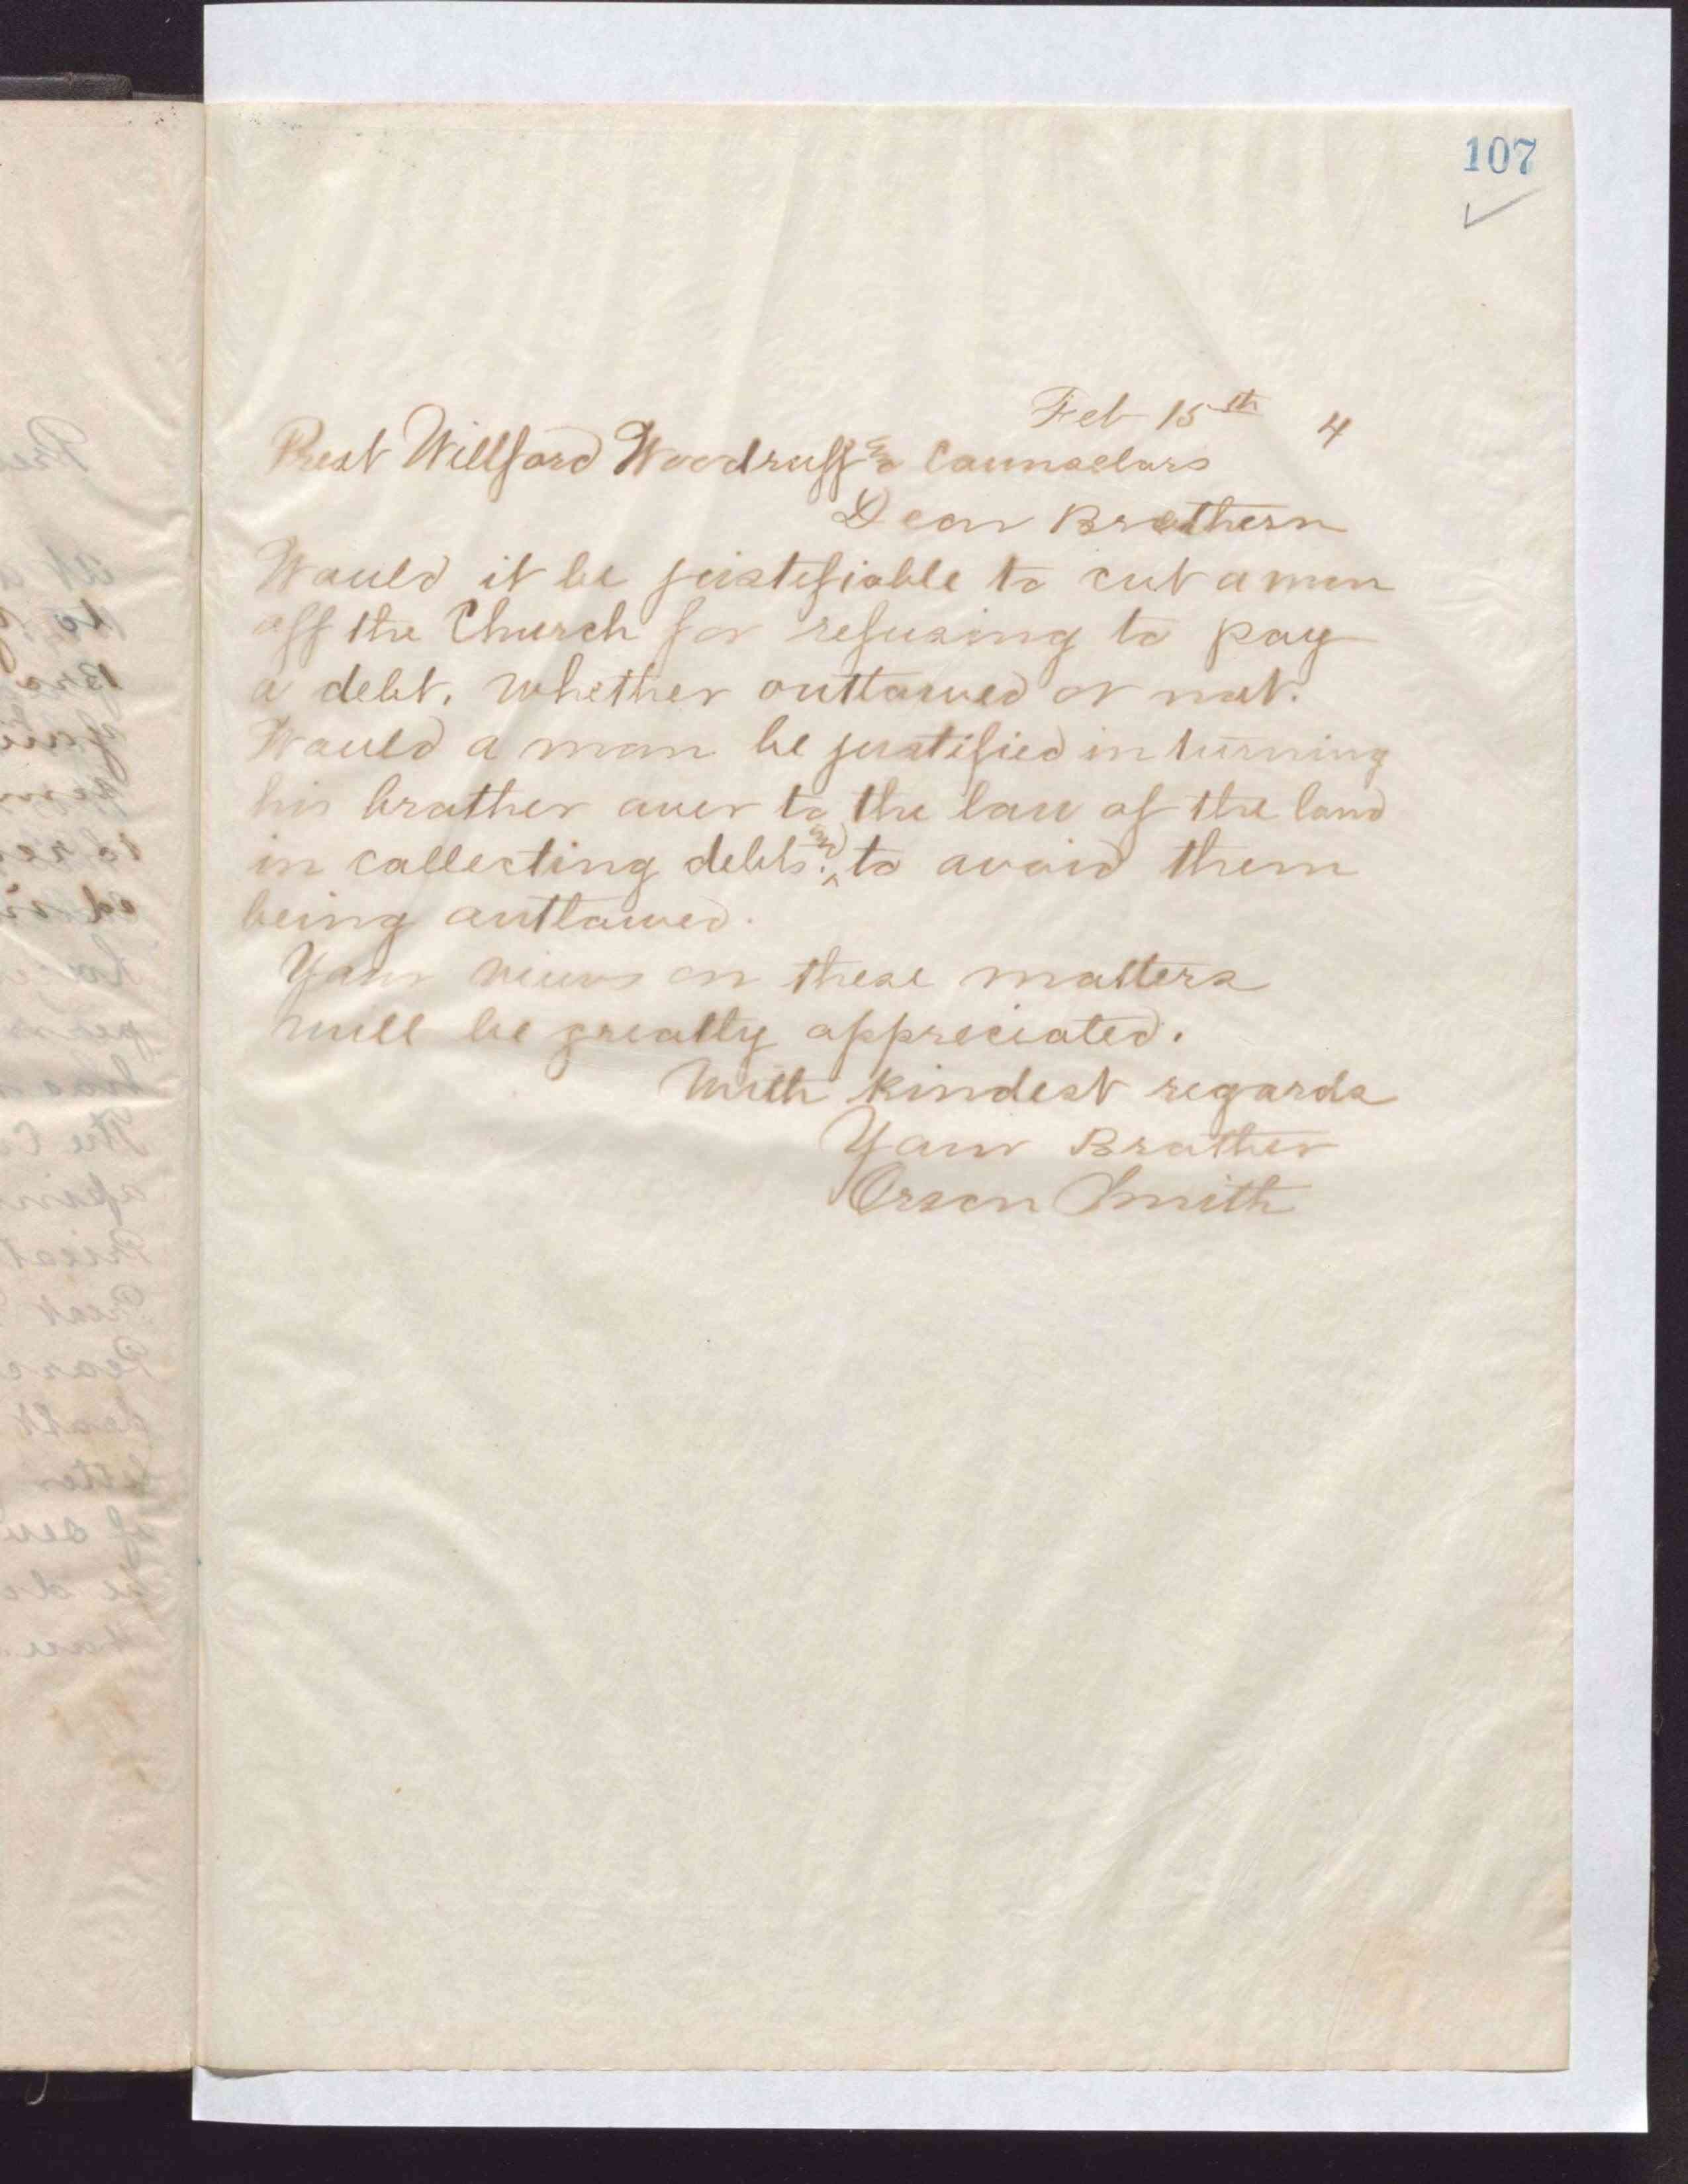 107
Feb 15th 4
Prest Willford Woodruff and Counselors
Dear Brethern
Would it be justifiable to cut a man
off the Church for refusing to pay
a debt, whether outlawed or not.
Would a man be justified in turning
his brother over to the law of the land
in collecting debts. and to avoid them
being outlawed.
Your views on these matters
will be greatly appreciated.
With kindest regards
Your Brother
Orson Smith